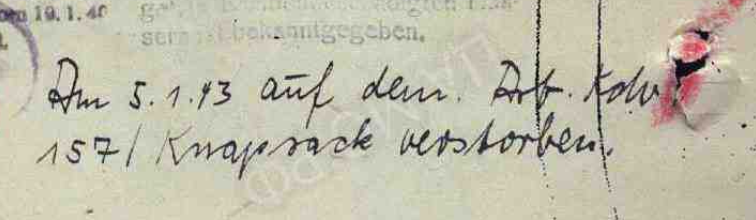 19.1.40
bekanntgegeben.
Am 5.1.43 auf dem. Arb. Kdo
157/ Knapsack verstorben.